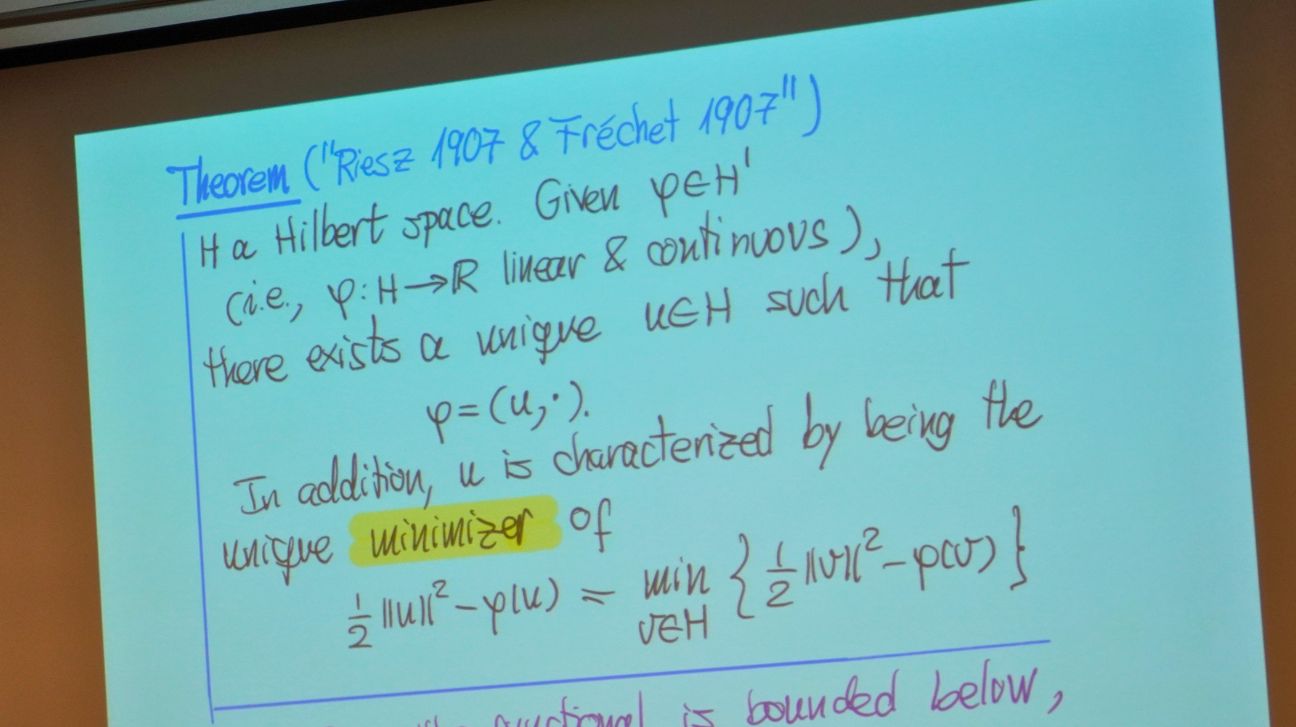 Theorem ("Riesz 1907 & Fréchet 1907")
H a Hilbert space. Given φ∈H'
(i.e., φ:H→ℝ linear & continuous),
there exists a unique u∈H such that
φ=(u,·).
In addition, u is characterized by being the
unique minimizer of
1/2 ||u||² - φ(u) = min_{v∈H} { 1/2 ||v||² - φ(v) }
is bounded below,